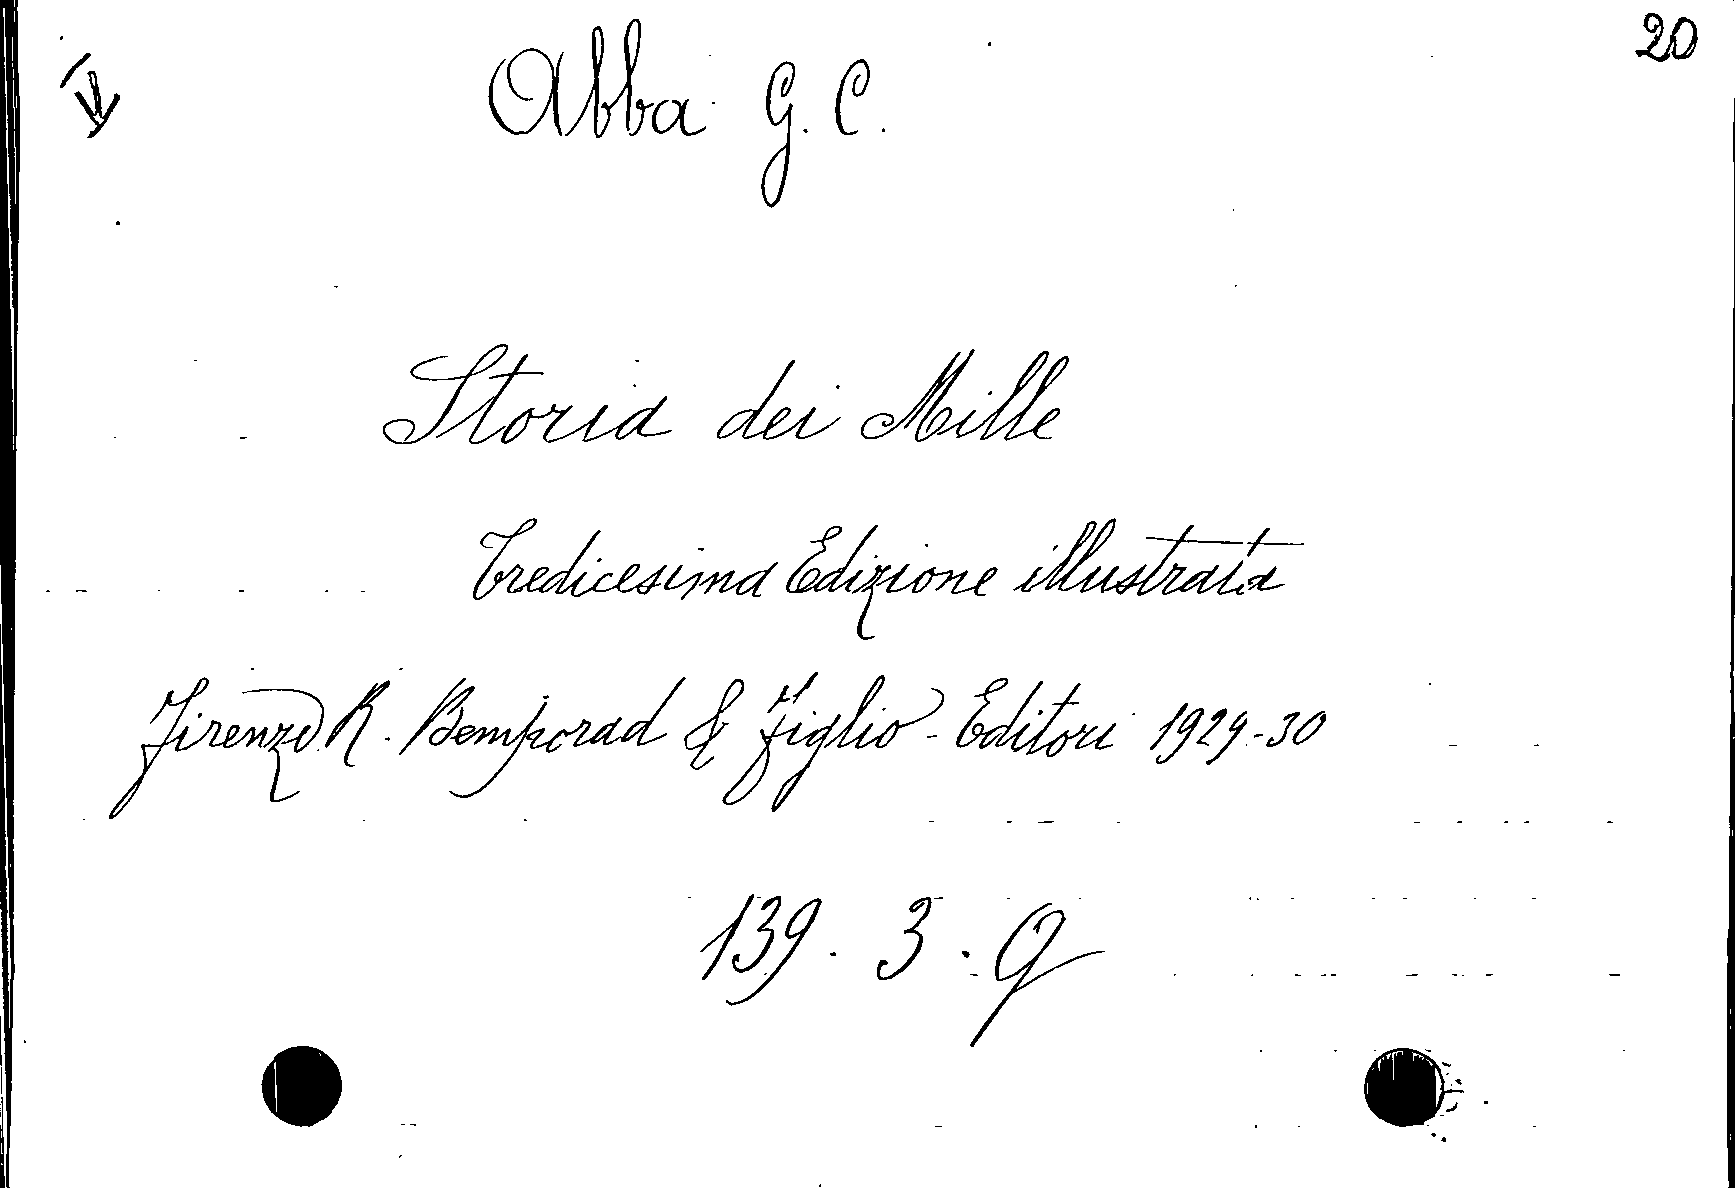 20
Abba G. C.
Storia dei Mille
Tredicesima Edizione illustrata
Firenze R. Bemporad & Figlio - Editori 1929-30
139. 3. G